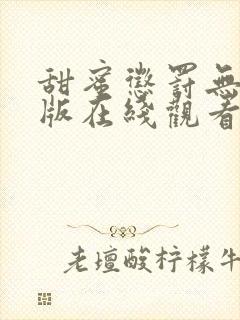 甜蜜懲罰無
版在綫觀看
老壇酸柠檬牛